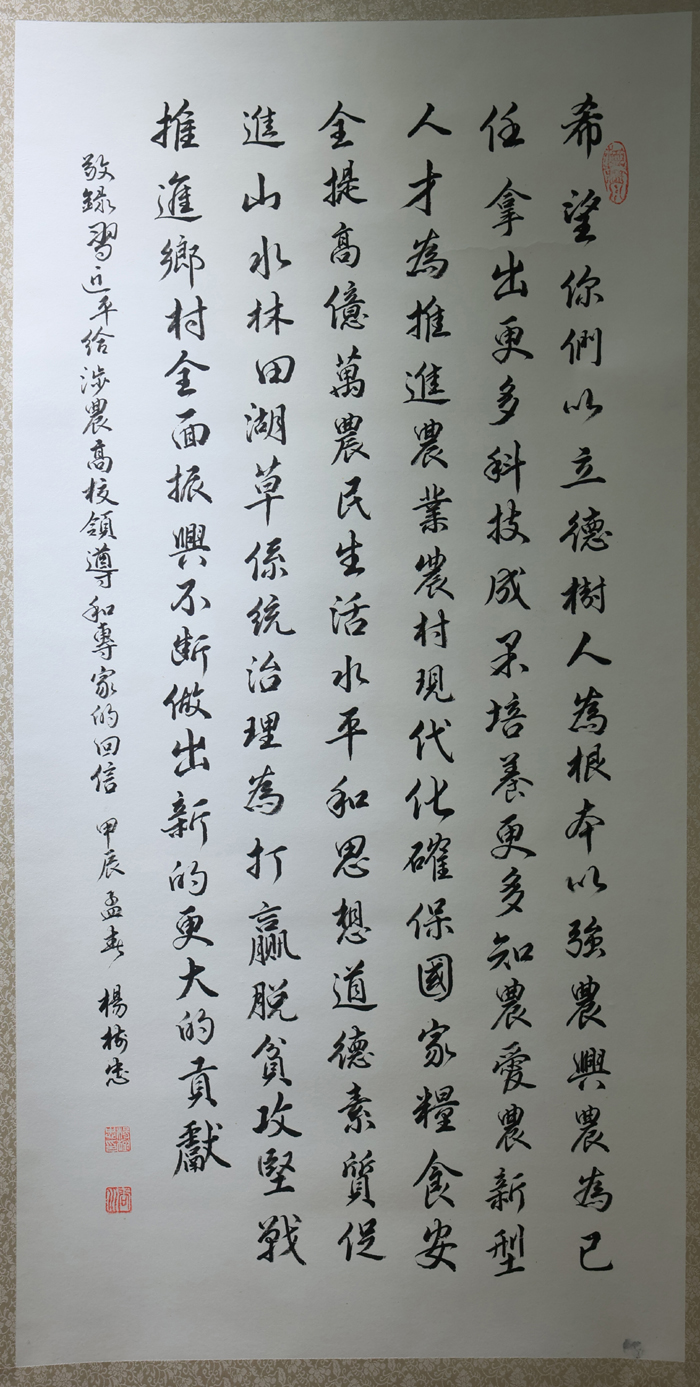 希望你們以立德樹人為根本以強農興農為己
任拿出更多科技成果培養更多知農愛農新型
人才為推進農業農村現代化確保國家糧食安
全提高億萬農民生活水平和思想道德素質促
進山水林田湖草係統治理為打贏脫貧攻堅戰
推進鄉村全面振興不斷做出新的更大的貢獻
敬錄習近平給涉農高校領導和專家的回信 甲辰孟春 楊樹忠